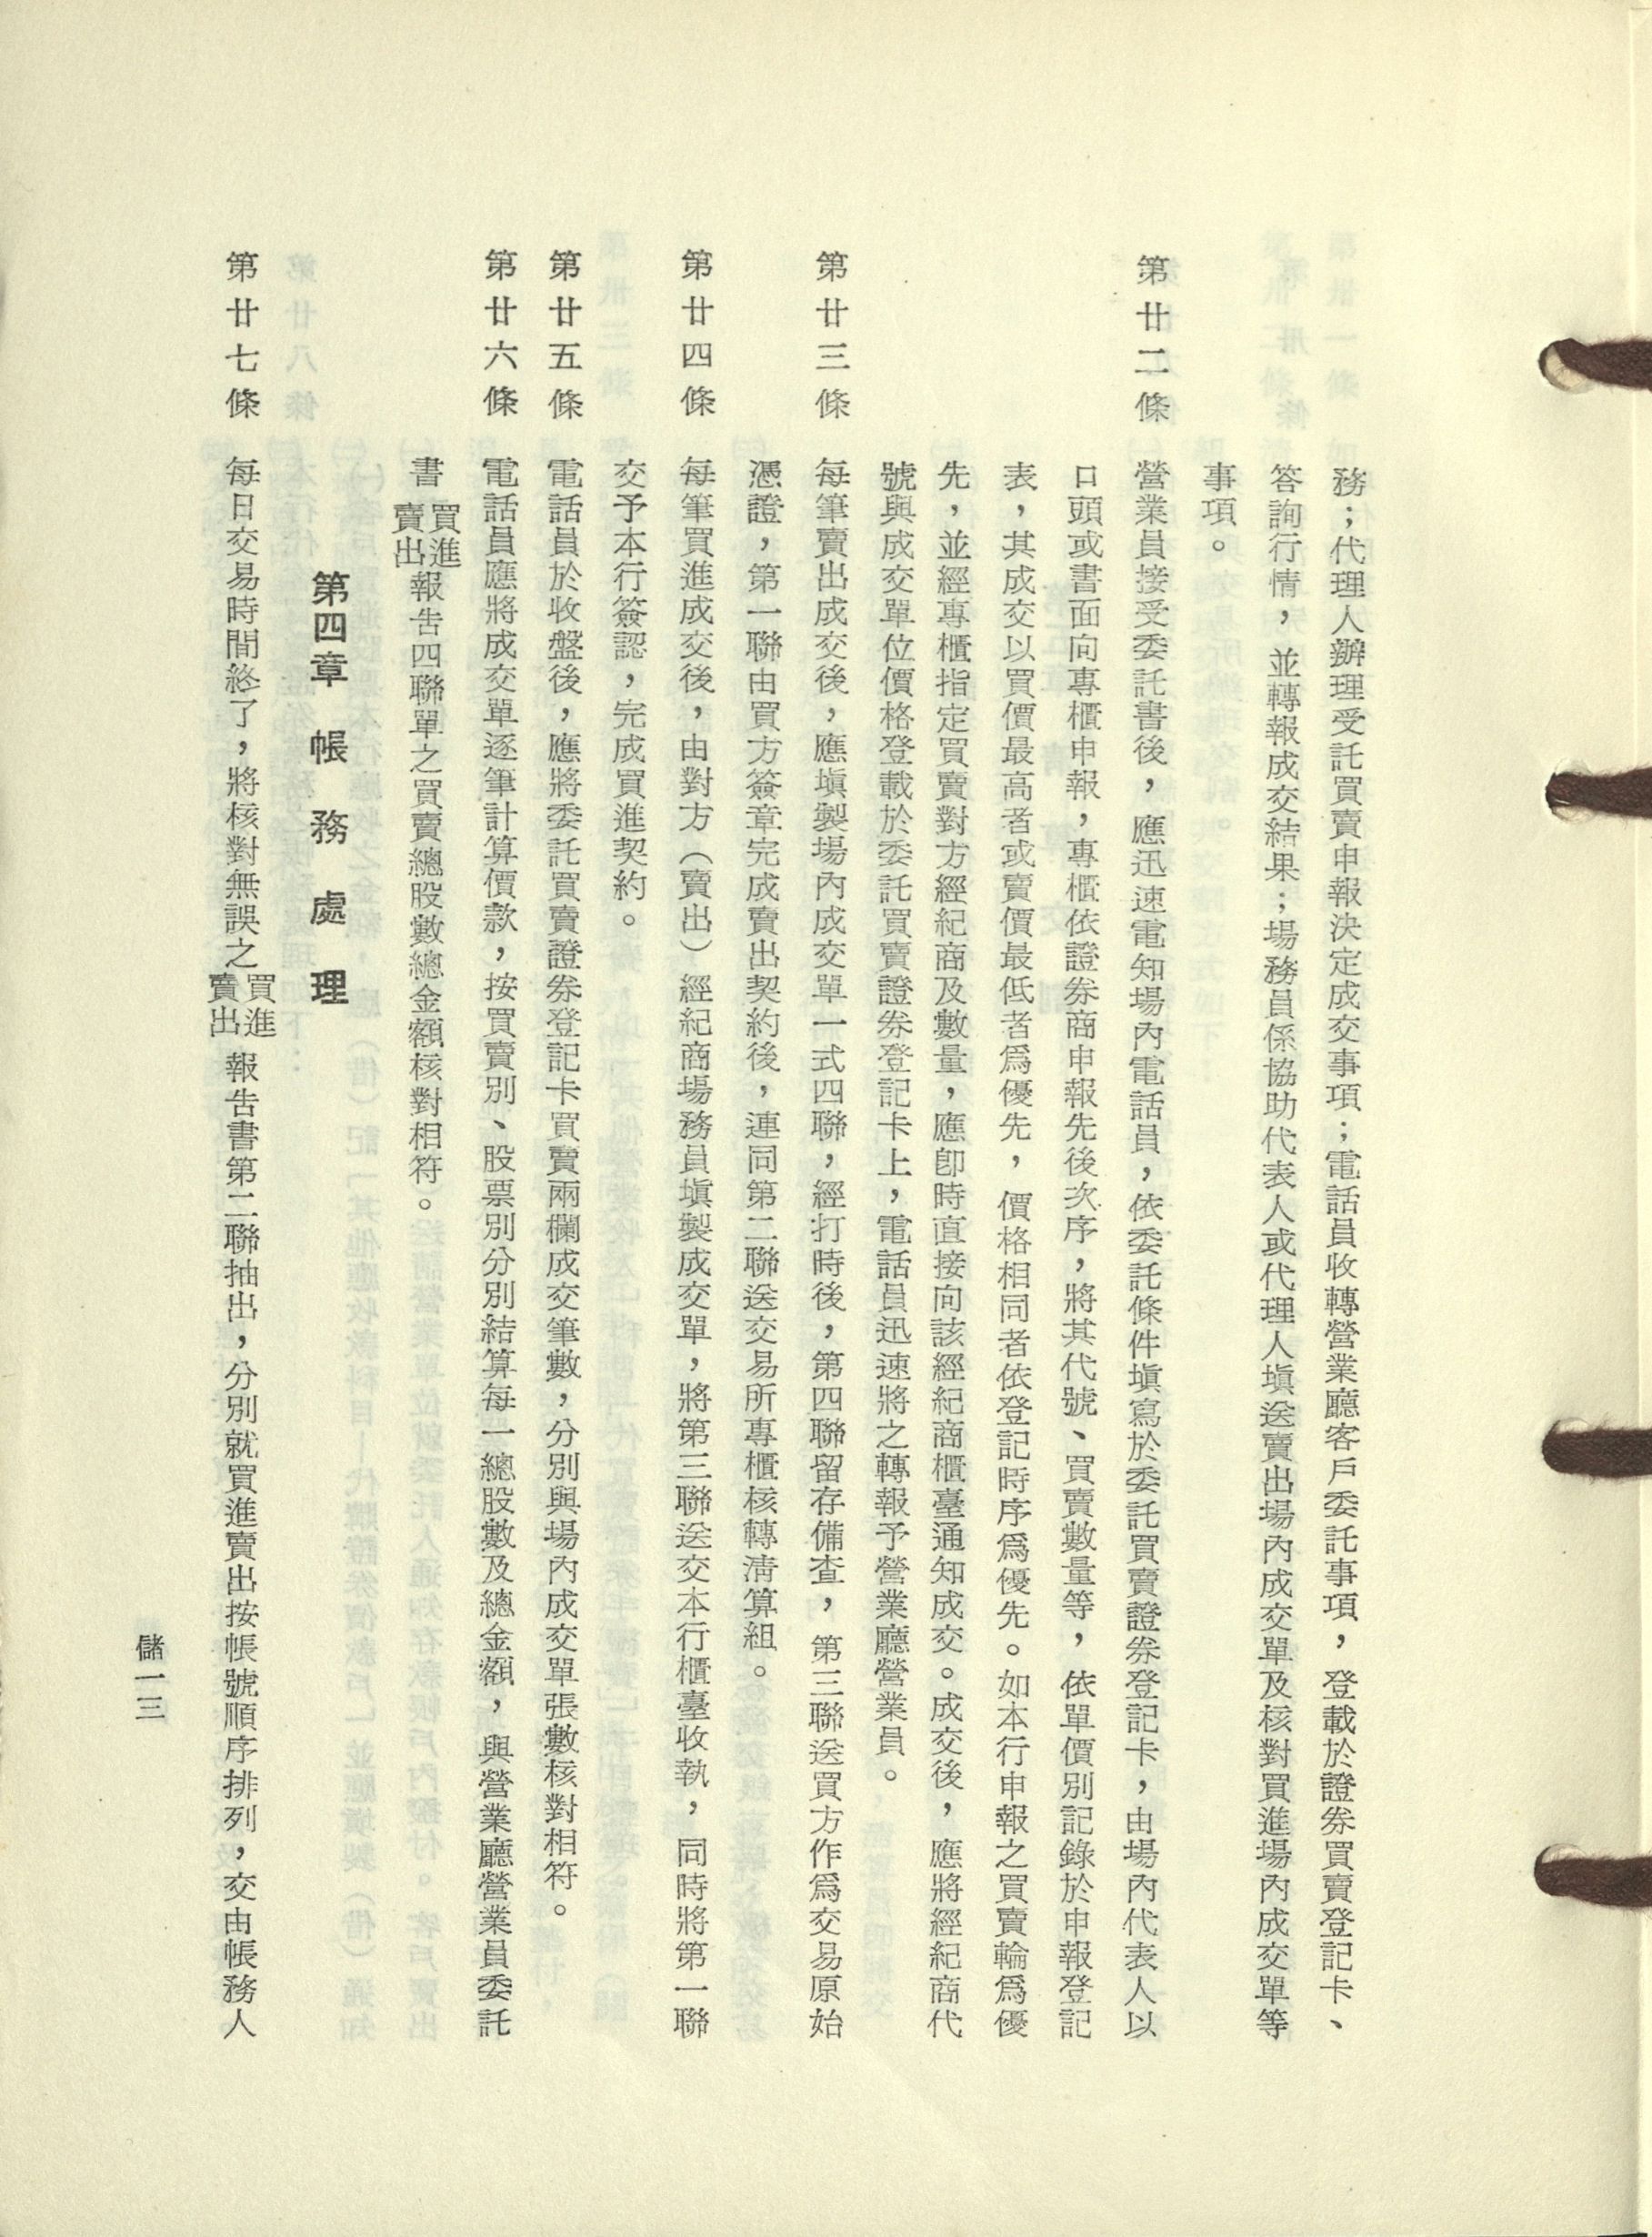 務；代理人辦理受託買賣申報決定成交事項；電話員收轉營業廳客戶委託事項，登載於證券買賣登記卡、
答詢行情，並轉報成交結果；場務員係協助代表人或代理人塡送賣出場內成交單及核對買進場內成交單等
事項。
第廿二條　營業員接受委託書後，應迅速電知場內電話員，依委託條件塡寫於委託買賣證券登記卡，由場內代表人以
口頭或書面向專櫃申報，專櫃依證券商申報先後次序，將其代號、買賣數量等，依單價別記錄於申報登記
表，其成交以買價最高者或賣價最低者爲優先，價格相同者依登記時序爲優先。如本行申報之買賣輪爲優
先，並經專櫃指定買賣對方經紀商及數量，應卽時直接向該經紀商櫃臺通知成交。成交後，應將經紀商代
號與成交單位價格登載於委託買賣證券登記卡上，電話員迅速將之轉報予營業廳營業員。
第廿三條　每筆賣出成交後，應塡製場內成交單一式四聯，經打時後，第四聯留存備查，第三聯送買方作爲交易原始
憑證，第一聯由買方簽章完成賣出契約後，連同第二聯送交易所專櫃核轉淸算組。
第廿四條　每筆買進成交後，由對方（賣出）經紀商場務員塡製成交單，將第三聯送交本行櫃臺收執，同時將第一聯
交予本行簽認，完成買進契約。
第廿五條　電話員於收盤後，應將委託買賣證券登記卡買賣兩欄成交筆數，分別與場內成交單張數核對相符。
第廿六條　電話員應將成交單逐筆計算價款，按買賣別、股票別分別結算每一總股數及總金額，與營業廳營業員委託
書買進賣出報告四聯單之買賣總股數總金額核對相符。
第四章　帳務處理
第廿七條　每日交易時間終了，將核對無誤之買進賣出報告書第二聯抽出，分別就買進賣出按帳號順序排列，交由帳務人
儲一三